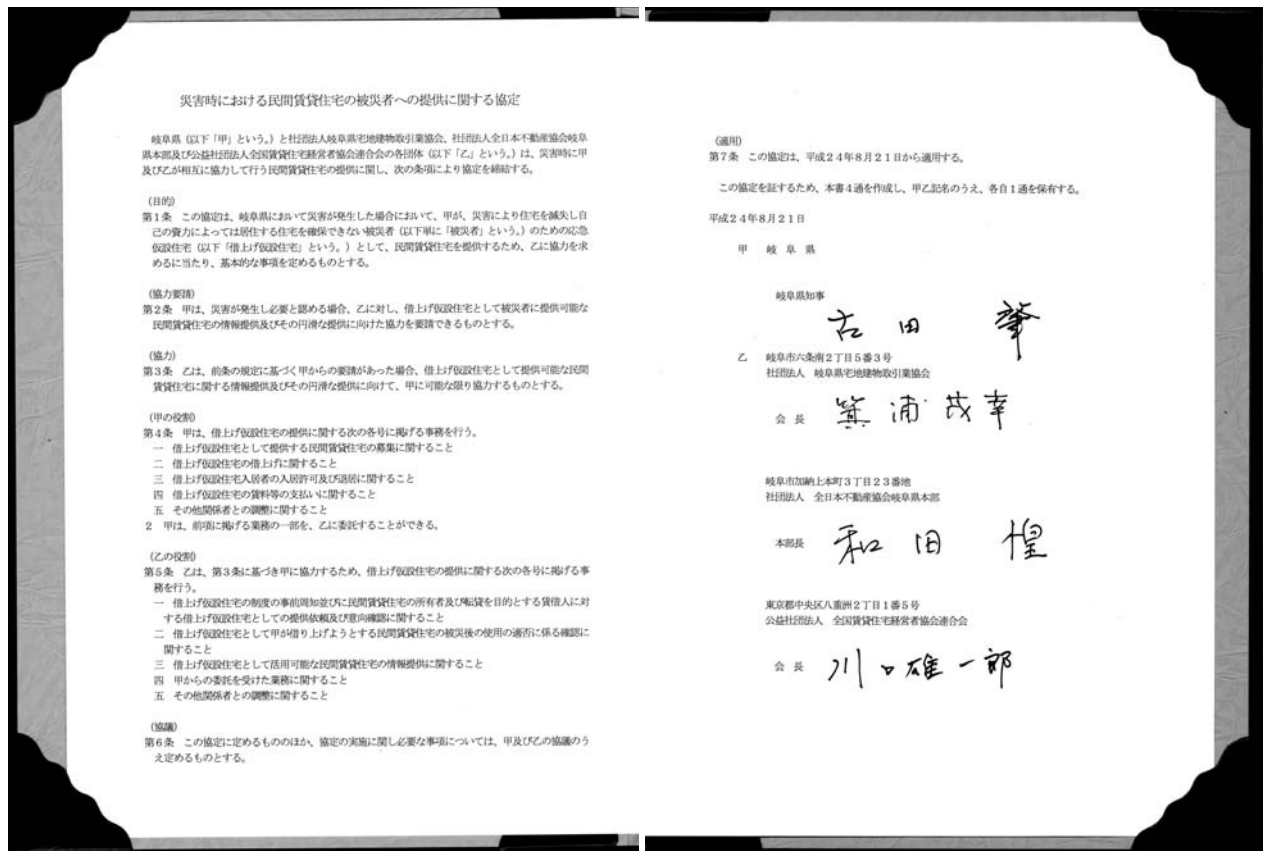 災害時における民間賃貸住宅の被災者への提供に関する協定
岐阜県(以下「甲」という。)と社団法人岐阜県宅地建物取引業協会、社団法人全日本不動産協会岐阜
県本部及び公益社団法人全国賃貸住宅経営者協会連合会の各団体(以下「乙」という。)は、災害時に甲
及び乙が相互に協力して行う民間賃貸住宅の提供に関し、次の条項により協定を締結する。
(目的)
第1条 この協定は、岐阜県において災害が発生した場合において、甲が、災害により住宅を滅失し自
己の資力によっては居住する住宅を確保できない被災者(以下単に「被災者」という。)のための応急
仮設住宅(以下「借上げ仮設住宅」という。)として、民間賃貸住宅を提供するため、乙に協力を求
めるに当たり、基本的な事項を定めるものとする。
(協力要請)
第2条 甲は、災害が発生し必要と認める場合、乙に対し、借上げ仮設住宅として被災者に提供可能な
民間賃貸住宅の情報提供及びその円滑な提供に向けた協力を要請できるものとする。
(協力)
第3条 乙は、前条の規定に基づく甲からの要請があった場合、借上げ仮設住宅として提供可能な民間
賃貸住宅に関する情報提供及びその円滑な提供に向けて、甲に可能な限り協力するものとする。
(甲の役割)
第4条 甲は、借上げ仮設住宅の提供に関する次の各号に掲げる事務を行う。
一 借上げ仮設住宅として提供する民間賃貸住宅の募集に関すること
二 借上げ仮設住宅の借上げに関すること
三 借上げ仮設住宅入居者の入居許可及び退居に関すること
四 借上げ仮設住宅の賃料等の支払いに関すること
五 その他関係者との調整に関すること
2 甲は、前項に掲げる業務の一部を、乙に委託することができる。
(乙の役割)
第5条 乙は、第3条に基づき甲に協力するため、借上げ仮設住宅の提供に関する次の各号に掲げる事
務を行う。
一 借上げ仮設住宅の制度の事前周知並びに民間賃貸住宅の所有者及び転貸を目的とする賃借人に対
する借上げ仮設住宅としての提供依頼及び意向確認に関すること
二 借上げ仮設住宅として甲が借り上げようとする民間賃貸住宅の被災後の使用の適否に係る確認に
関すること
三 借上げ仮設住宅として活用可能な民間賃貸住宅の情報提供に関すること
四 甲からの委託を受けた業務に関すること
五 その他関係者との調整に関すること
(協議)
第6条 この協定に定めるもののほか、協定の実施に関し必要な事項については、甲及び乙の協議のう
え定めるものとする。
(適用)
第7条 この協定は、平成24年8月21日から適用する。
この協定を証するため、本書4通を作成し、甲乙記名のうえ、各自1通を保有する。
平成24年8月21日
甲 岐阜県
岐阜県知事
古田 肇
乙 岐阜市六条南2丁目5番3号
社団法人 岐阜県宅地建物取引業協会
会長 箕浦茂幸
岐阜市加納上本町3丁目23番地
社団法人 全日本不動産協会岐阜県本部
本部長 和田 惶
東京都中央区八重洲2丁目1番5号
公益社団法人 全国賃貸住宅経営者協会連合会
会長 川口雄一郎